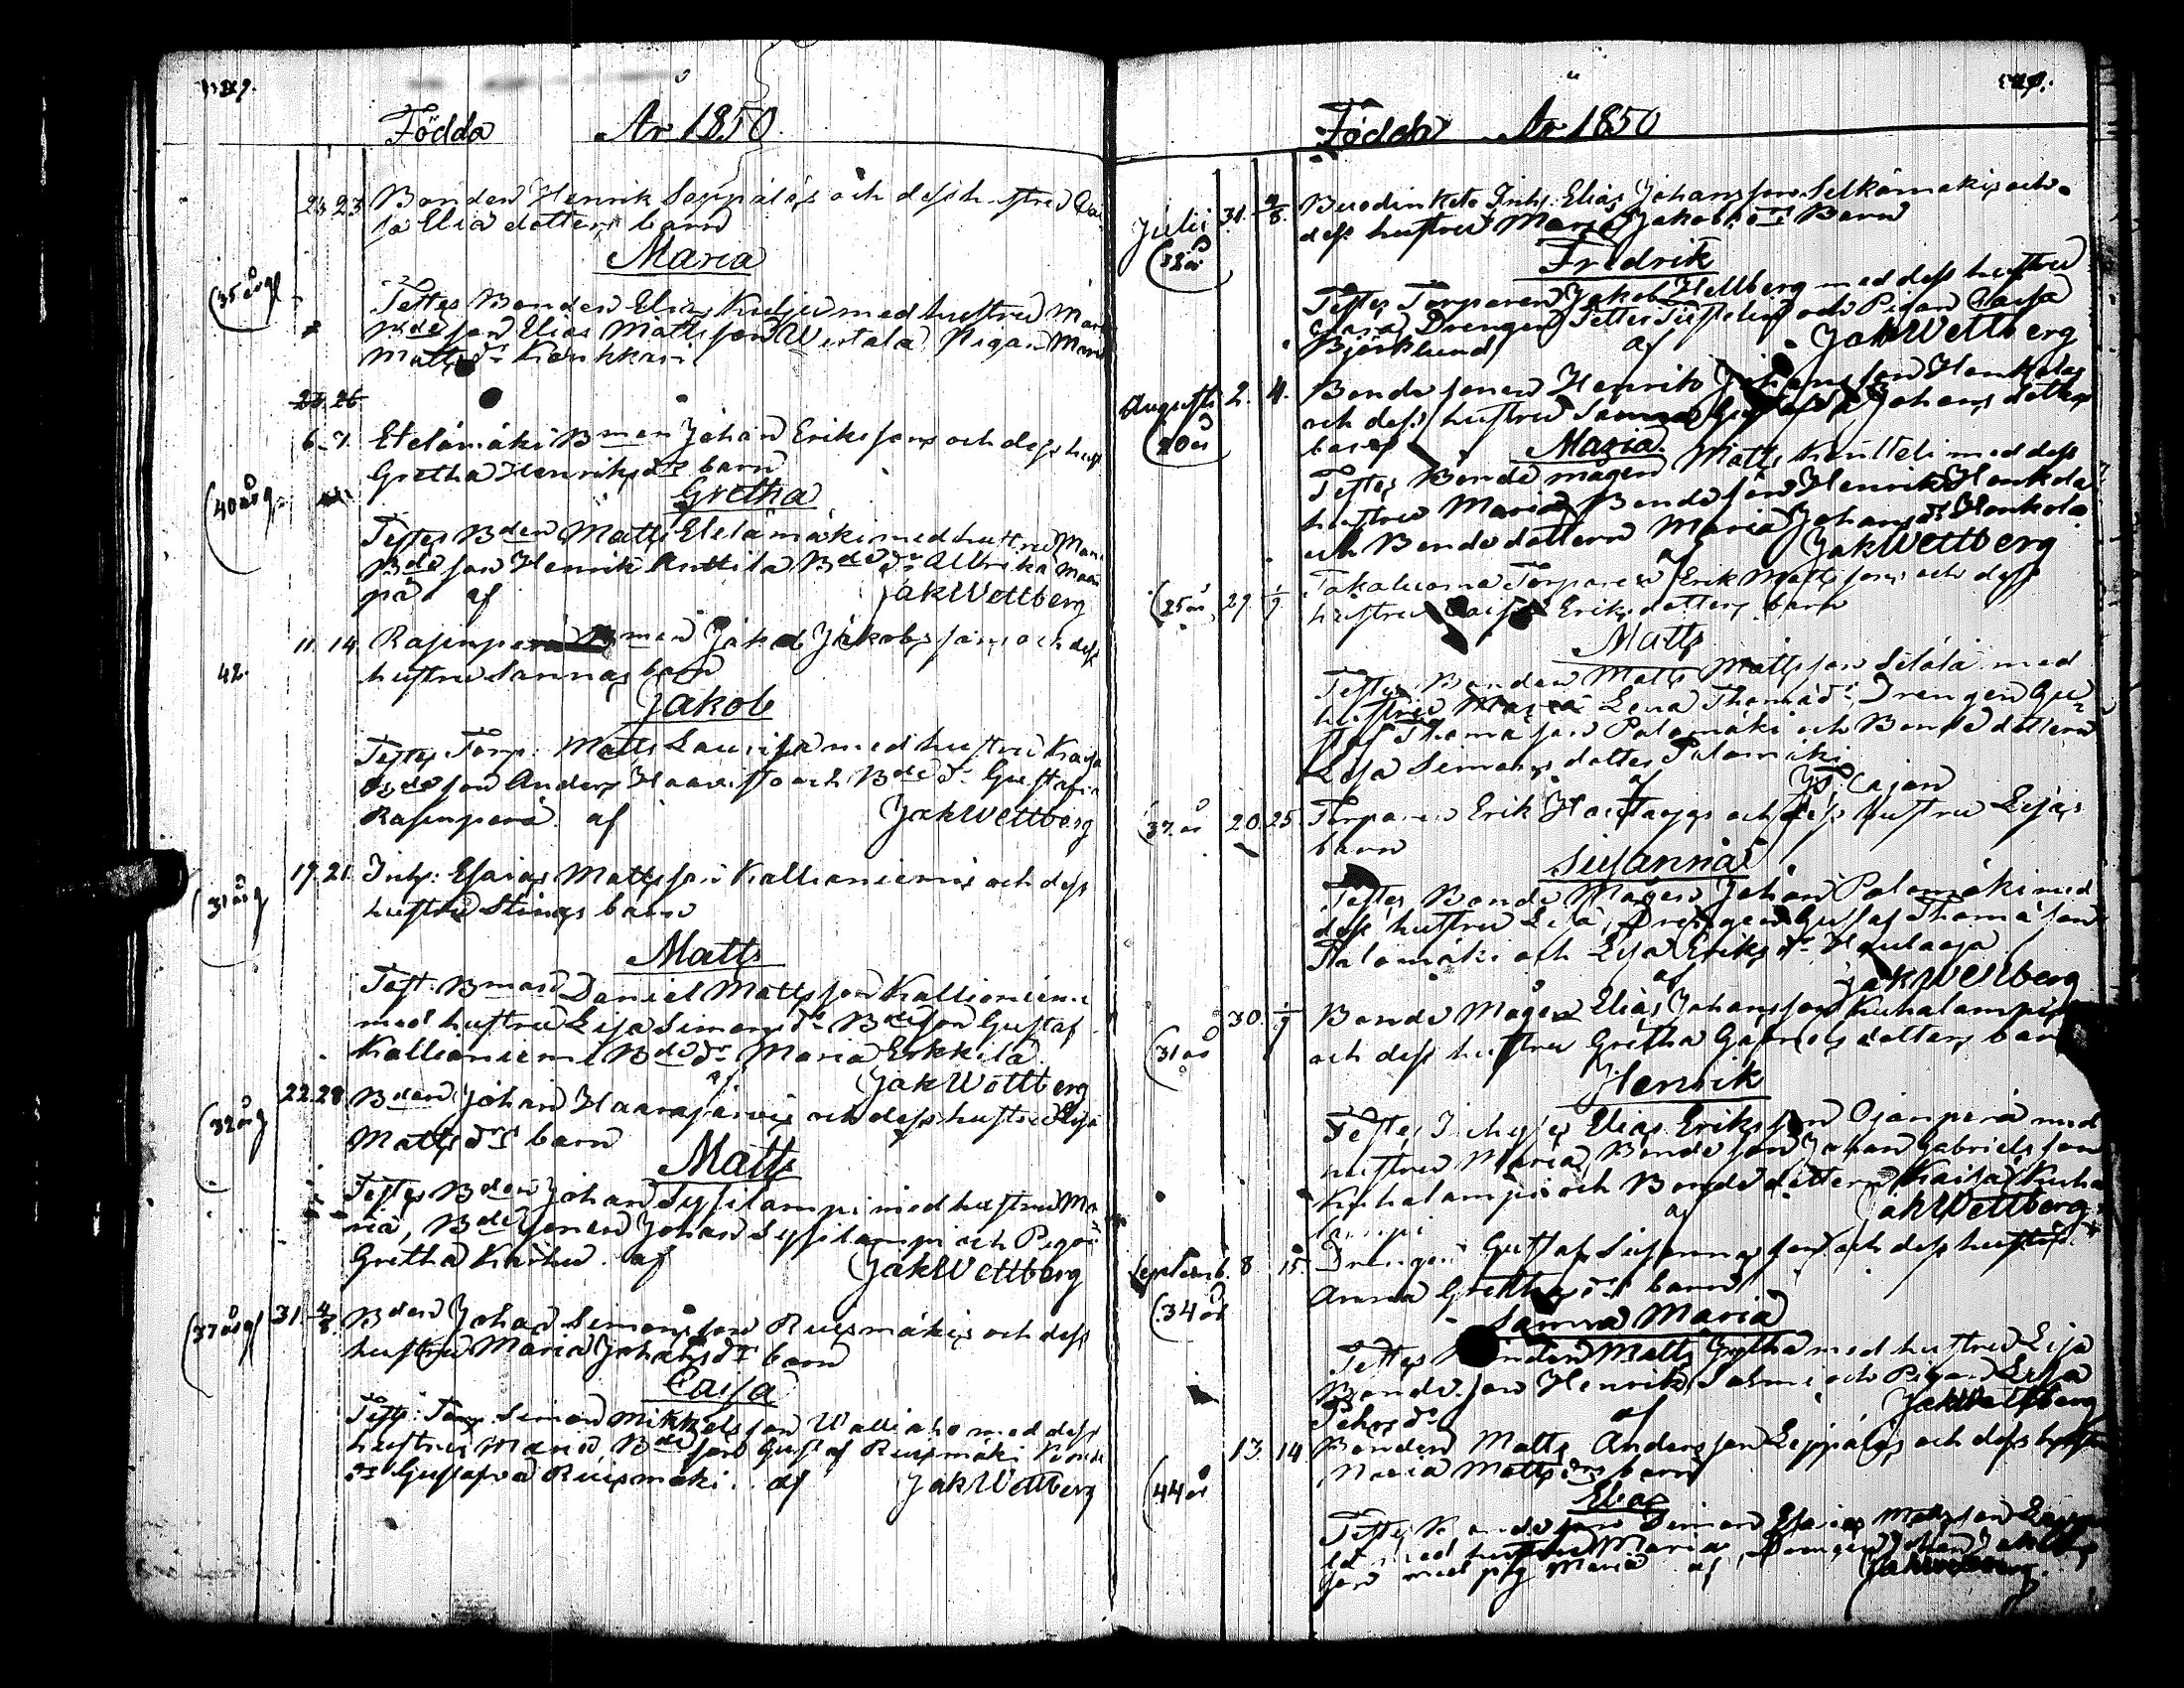 Födda År 1850
23 23 Bonden Henrik Seppäläs och dess hustru Cai
sa Elia dotters barn
Maria
(35 årg)
Testes Bonden Elias med hustru Mar
Bde son Elias Mattsson Wertala Pigan Maria
Matts dr Karhkain
25 26
6 7. Etelämäki Bman Johan Eriksons och dess hust
Gretha Henriks drs barn
(40 årg
Gretha
Testes Bden Matts Etelämäki med hustru Maria
Bde son Henrik Anttila Bde dr Ulbrika Maan
pä af JakWettberg
11. 14. Rasinperä Bman Jakob Jakobssons och dess
hustru Sannas barn
42.
Jakob
Testes Torp: Matts Laurila med hustru Kaisa
Bde son Anders Haavisto och Bde dr Gustafva
Rasinperä af JakWettberg
19. 21. Inhs: Esaias Mattsson Kallioniemis och dess
hustru Stinas barn
(31 årg
Matts
Test: Bman Daniel Mattsson Kallioniemi
med hustru Lisa Simons dr Bde son Gustaf
Kallioniemi Bde dr Maria Erkkilä
af JakWettberg
22. 28 Bden Johan Haarajärvis och dess hustru Lisa
Matts drs barn
(32 årg
Matts
Testes Bden Johan Syssilampi med hustru Ma
ria, Bde sonen Johan Syssilampi och Pigan
Gretha Karhu. af JakWettberg
(37 årg 31 4/8 Bden Johan Simonsson Ruismäkis och dess
hustru Maria Johans drs barn
Caisa
Testes: Torp: Simon Mikkelsson Walliaho med dess
hustru Maria, Bde son Gustaf Ruismäki Bonde
dr Gustafva Ruismäki. af JakWettberg
Födda År 1850
Julii 31. 4/8 Inhs: Elias Johansson Selkämäkis och
dess hustru Maria Jakobs drs Barn
(38 år
Fredrik
Testes Torparen Jakob Hellberg med dess hustru
Clara Drengen Petter och Pigan Caisa
Björklund af JakWettberg
Augusti 2. 4. Bonde sonen Henrik Johansson Honkolas
och dess hustru Sanna Johans dotters
barn
(20 år
Maria
Testes Bonde mågen Matts med dess
hustru Maria Bonde son Henrik Honkola
och Bonde dottern Maria Johans dr Honkola
af JakWettberg
(25 år 29. 1/9 Takaluoma Torparen Erik Mattssons och dess
hustru Caisa Eriks dotters barn
Matts
Testes Bonden Matts Mattsson Setälä med
hustru Lena Thomä dr Drengen Gu
staf Thomasson Palomäki och Bonde dottern
Lisa Simons dotter Palomäki
af Cajan
(37 år 20. 25. Torparen Erik Hautaojas och dess hustru Lisas
barn
Susanna
Testes Bonde Mågen Johan Palomäki med
dess hustru Lisa, Drengen Gustaf Thomäson
Palomäki och Lisa Eriks dr Hautaoja
af JakWettberg
30. 1/9 Bonde Mågen Elias Johansson Kuhalampis
och dess hustru Gretha Gabriels dotters barn
(31 år
Henrik
Testes Inhyses Elias Eriksson Ojanperä med
hustru Maria, Bonde son Johan Gabrielsson
Kuhalampi och Bonde dottern Kaisa Kuha
lampi af JakWettberg
Septemb. 8 15. Drengen Gustaf Susannasson och dess hustru
Anna Grethas drs barn
(34 år
Sanna Maria
Testes Bonden Matts Jyltha med hustru Lisa
Bonde son Henrik Salmi och Pigan Lisa
Pehrs dr af JakWettberg
13. 14. Bonden Matts Andersson Leppäläs och dess hustru
Maria Matts drs barn
(44 år
Elias
Testes Bonde son Simon Esaias Mattsson
med hustru Maria, Drengen Johan Jakobs
son med pig Maria af JakWettberg.